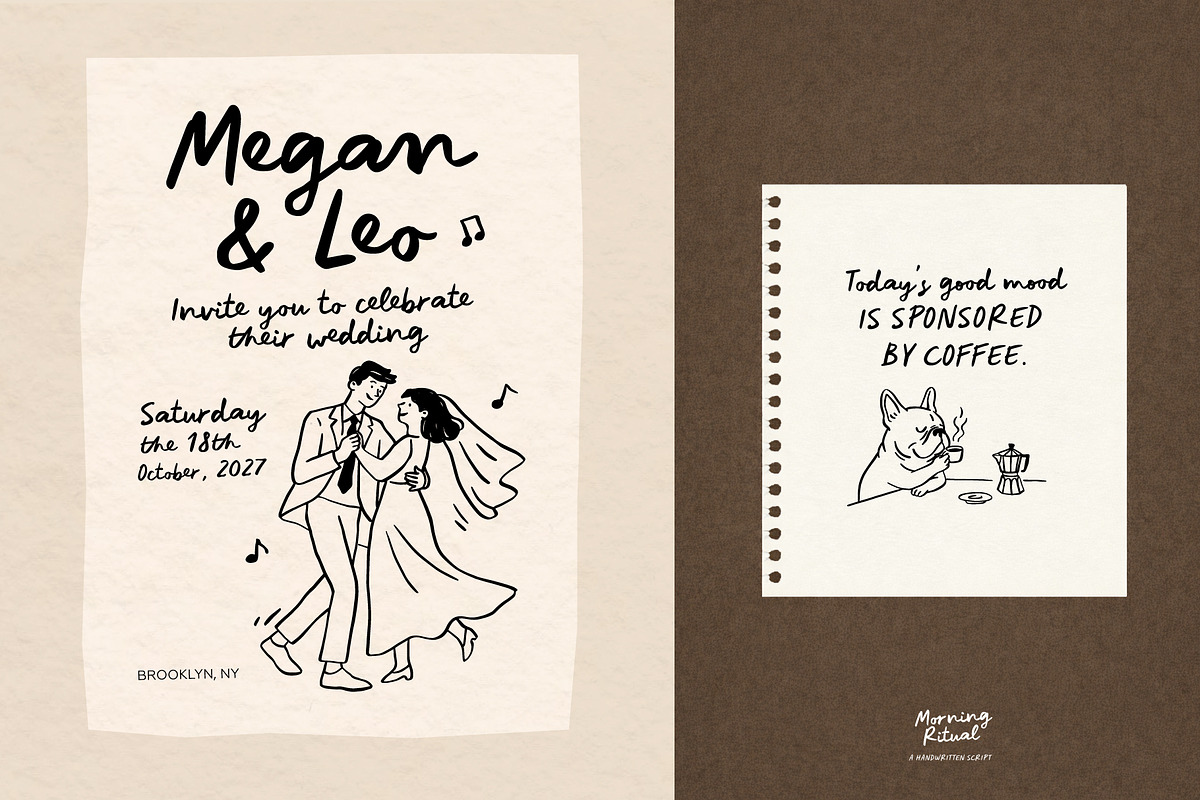 Megan
& Leo
Invite you to celebrate
their wedding
Saturday
the 18th
October, 2027
BROOKLYN, NY
Today's good mood
IS SPONSORED
BY COFFEE.
Morning
Ritual
A HANDWRITTEN SCRIPT